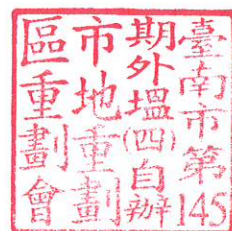 臺南市第145
期外塭(四)自辦
市地重劃
區重劃會